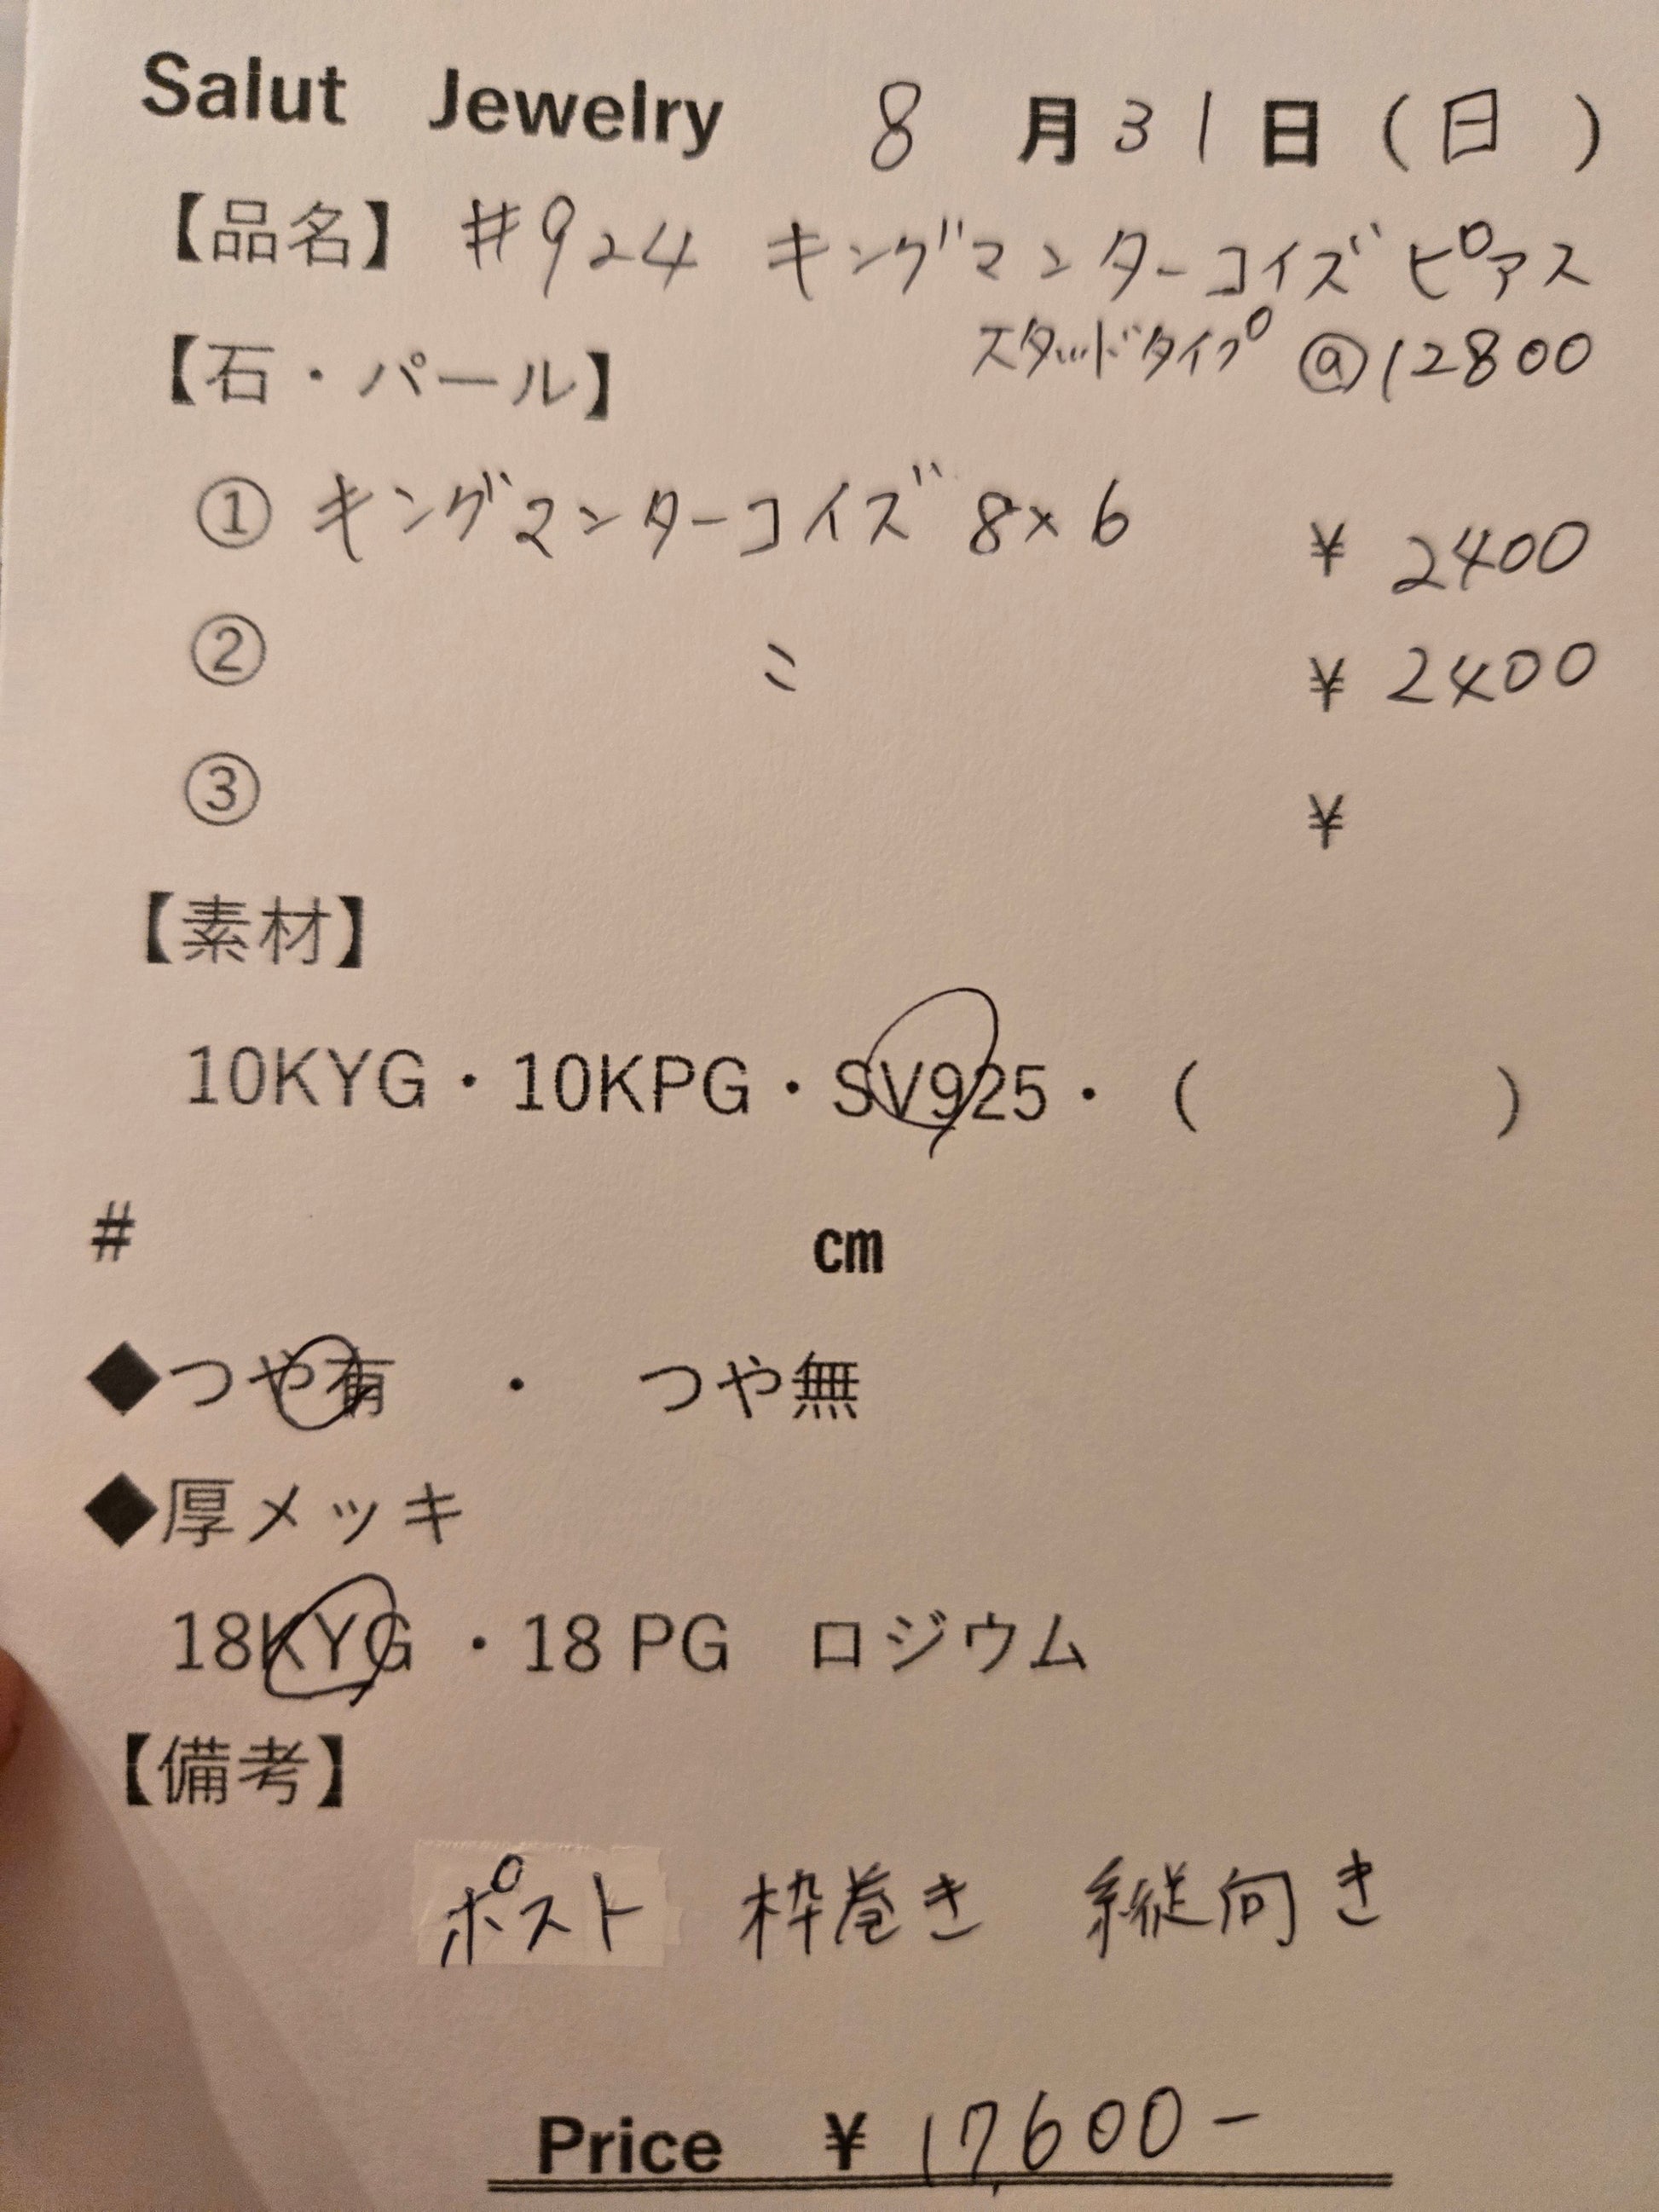 Salut Jewelry 8月31日(日)
【品名】 #924 キングマンターコイズピアス
スタッドタイプ @12800
【石・パール】
① キングマンターコイズ 8×6 ¥2400
② 〃 ¥2400
③ ¥
【素材】
10KYG・10KPG・SV925・( )
# cm
◆つや有 ・ つや無
◆厚メッキ
18KYG ・18 PG ロジウム
【備考】
ポスト 枠巻き 縦向き
Price ¥17,600-